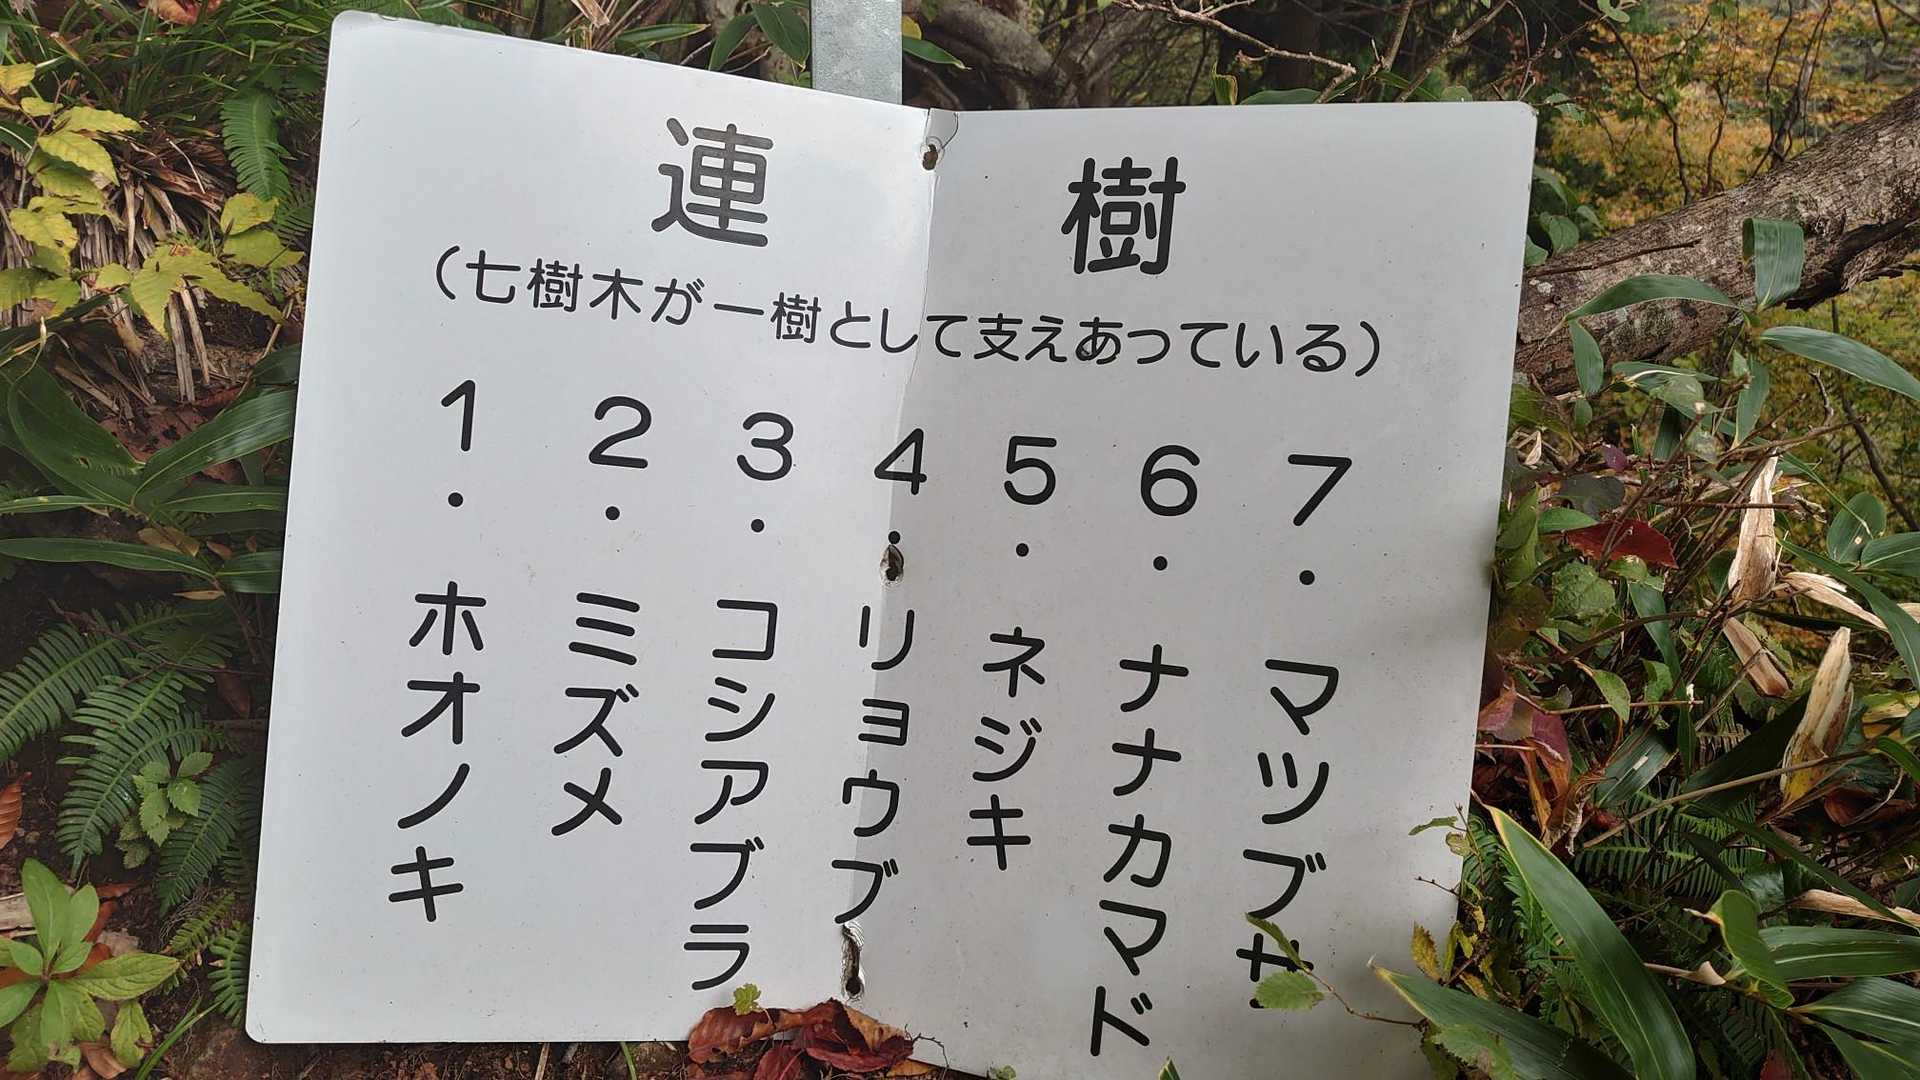 連 樹
（七樹木が一樹として支えあっている）
1・ホオノキ
2・ミズメ
3・コシアブラ
4・リョウブ
5・ネジキ
6・ナナカマド
7・マツブサ